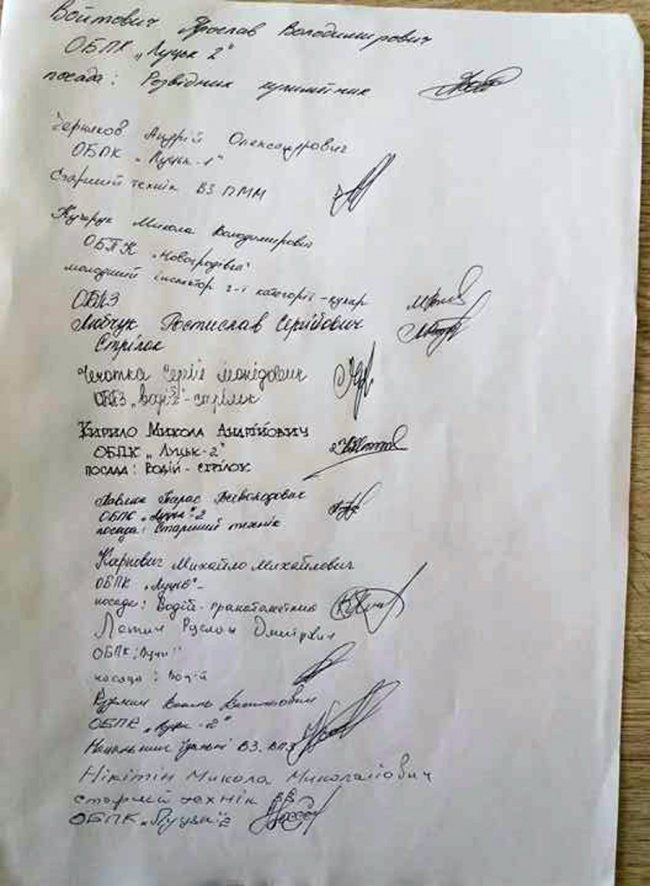 Войтович Ярослав Володимирович
ОБПК „Луцьк 2"
посада: Розвідник кулиметник
Андрій Олександрович
ОБПК „Луцьк-1"
Старший технік ВЗ ПММ
Кучарук Микола Володимирович
ОБПК „Новогродівка"
молодший інспектор 2-ї категорії - кухар
ОБПЗ
Любчук Ростислав Сергійович
Стрілок
Сергій
ОБПЗ „водій"-стрілок
Кирило Микола Андрійович
ОБПК „Луцьк-2"
посада: Водій-стрілок
Павлюк Тарас Всеволодович
ОБПК „Луцьк"-2
посада: Старший технік
Карпович Михайло Михайлович
ОБПК „Луцьк"-
посада: Водій-гранатометник
Руслан Дмитрович
ОБПК „Луцьк"
посада: Водій
ОБПК „Луцьк-2"
ВЗ. ВПЗ
Нікітін Микола Миколайович
старший технік
ОБПК „Луцьк"-2